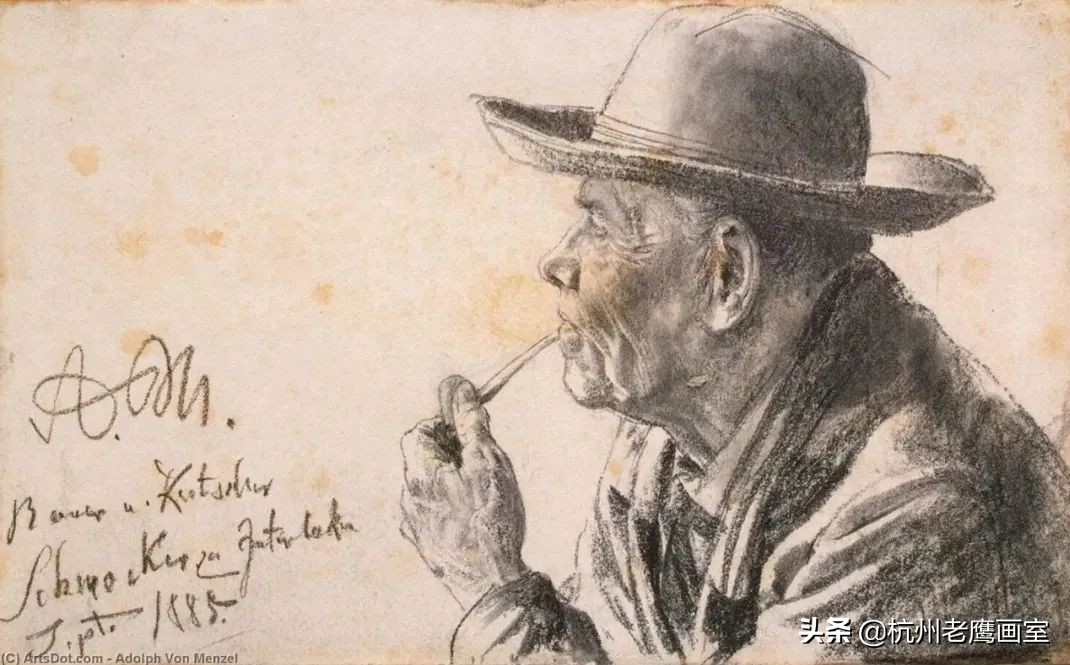 A. M.
Bauer u. Kutscher
Schmocker zu Interlaken
Sept. 1885.
(C) ArtsDot.com - Adolph Von Menzel
头条 @杭州老鹰画室